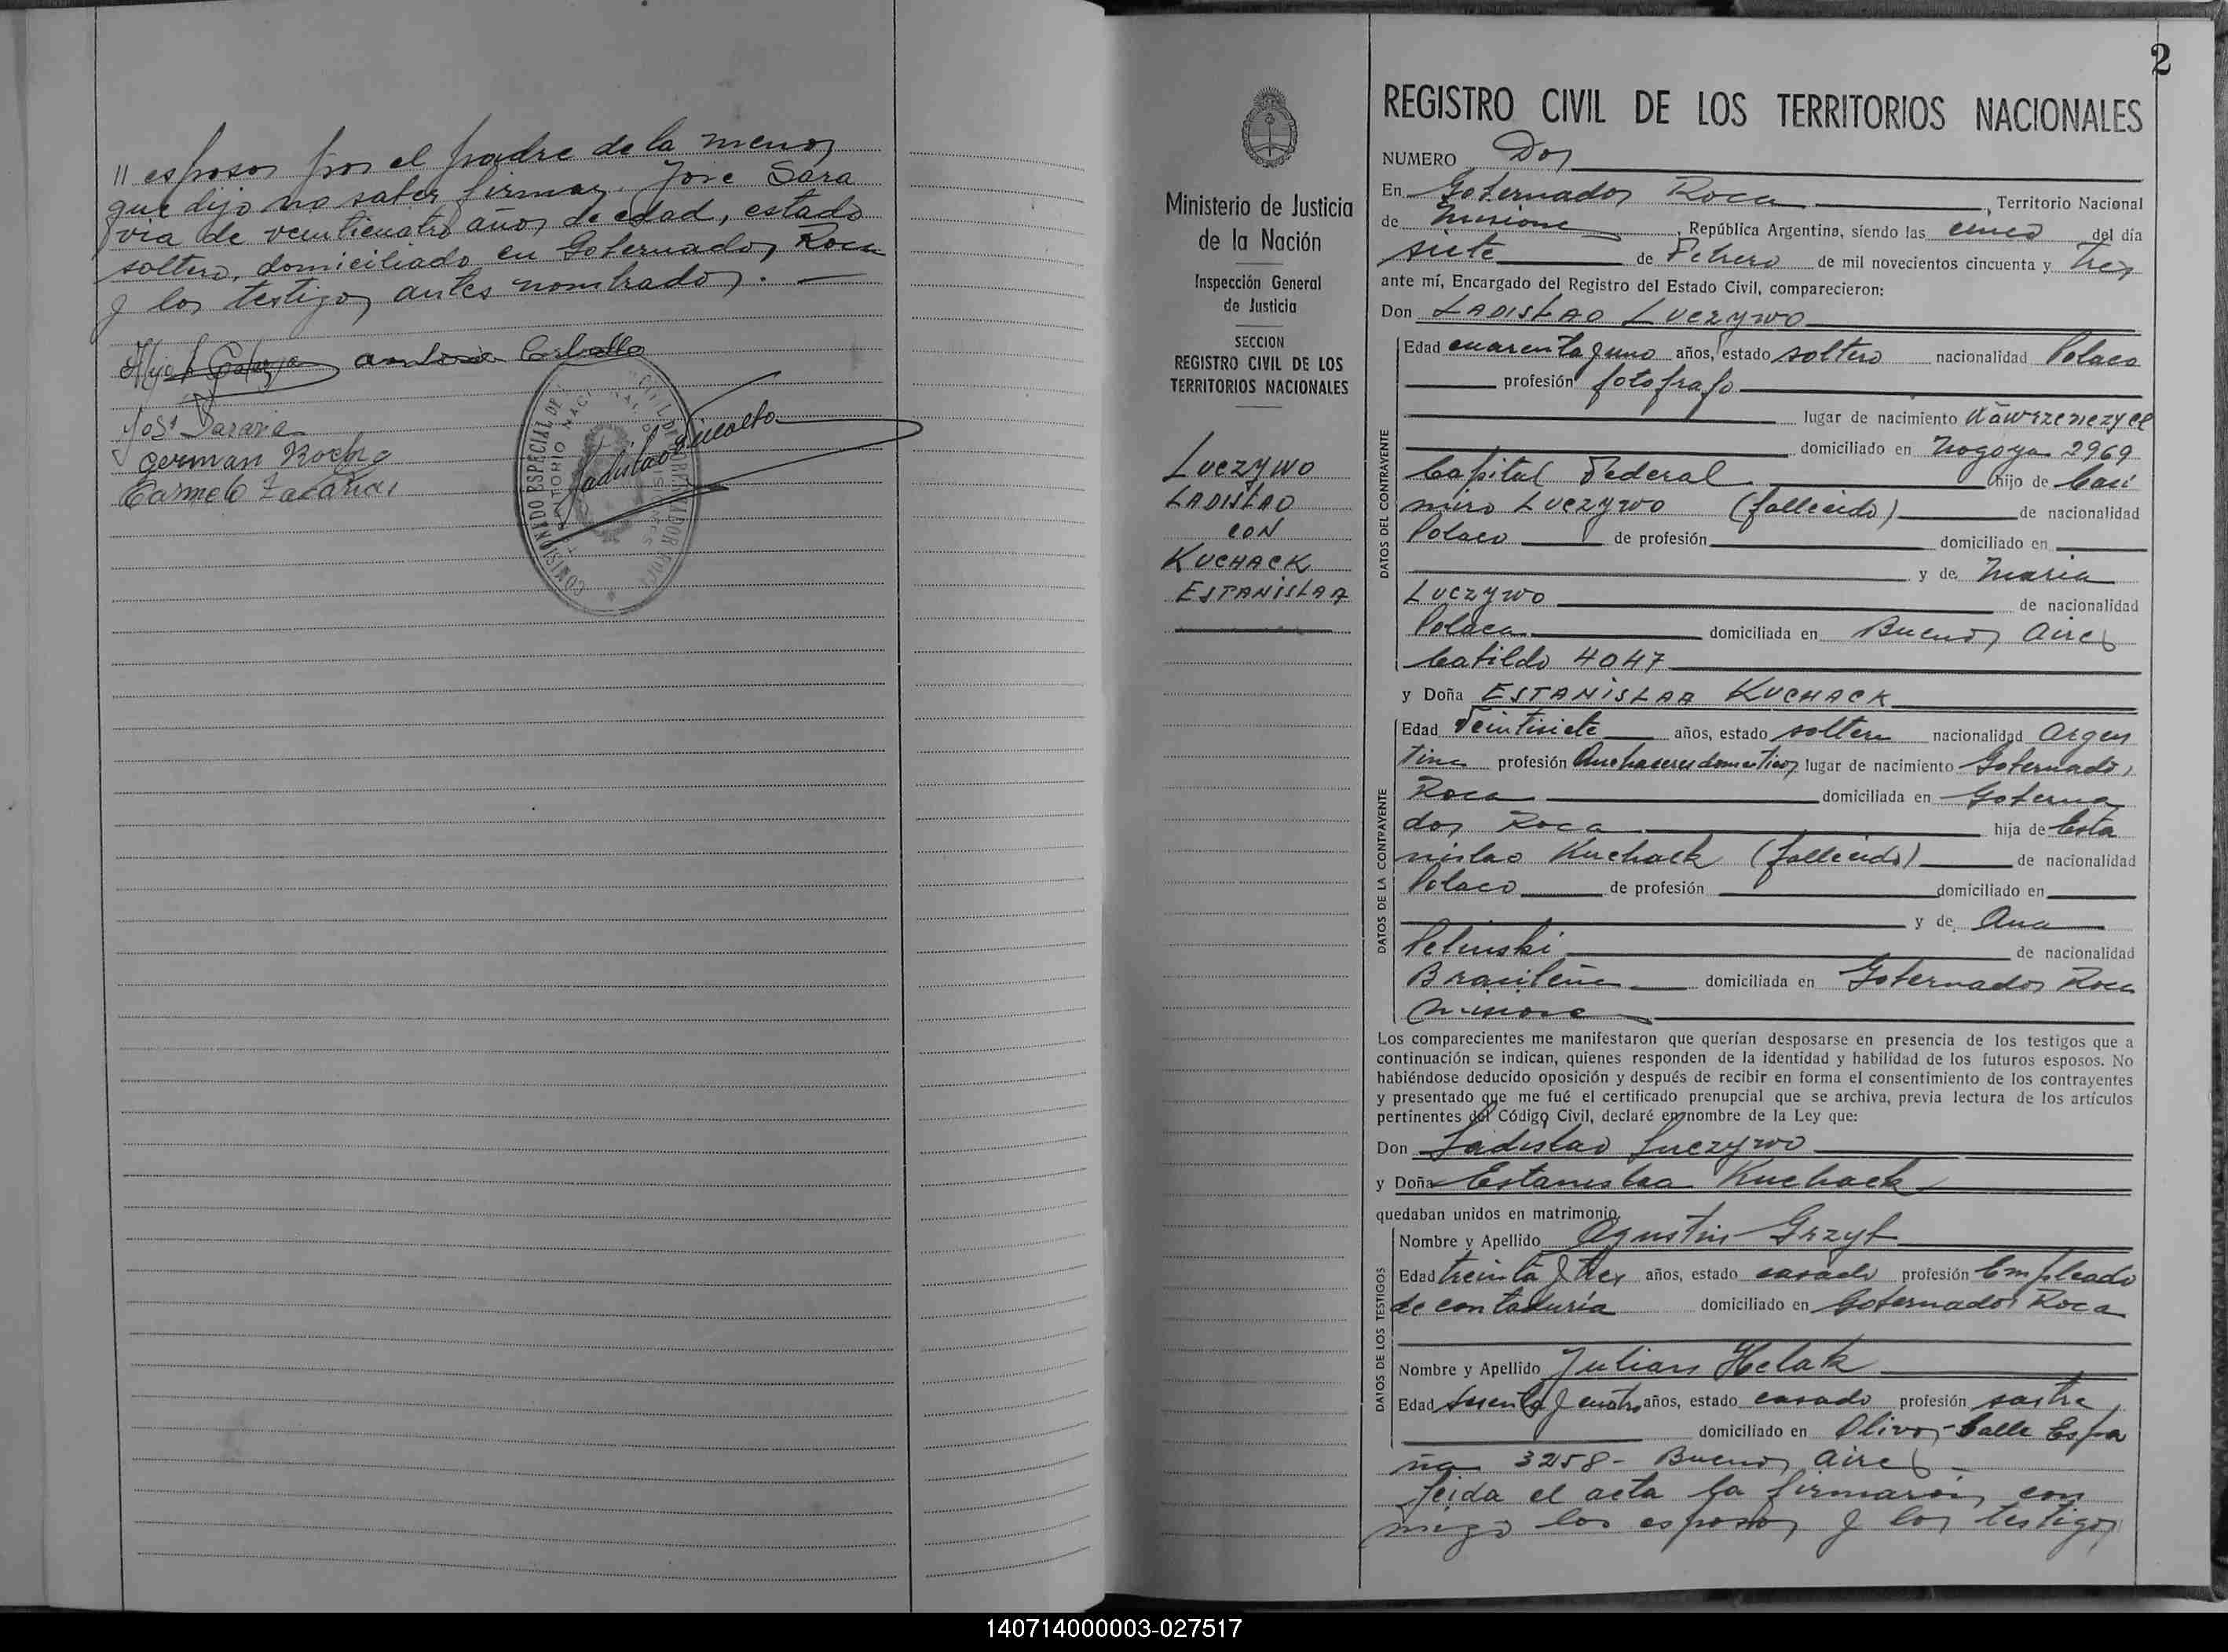 // esposos por el padre de la menor
que dijo no saber firmar. José Sara
via de veinticuatro años de edad, estado
soltero, domiciliado en Gobernador Roca
y los testigos antes nombrados. —
José Saravia
German Rocha
Carmelo Zacarias
COMISIONADO ESPECIAL DE
2
REGISTRO CIVIL DE LOS TERRITORIOS NACIONALES
Ministerio de Justicia
de la Nación
Inspección General
de Justicia
SECCION
REGISTRO CIVIL DE LOS
TERRITORIOS NACIONALES
LUCZYWO
LADISLAO
CON
KUCHACK
ESTANISLAA
NUMERO Dos
En Gobernador Roca, Territorio Nacional
de Misiones, República Argentina, siendo las cinco del día
siete de Febrero de mil novecientos cincuenta y tres
ante mí, Encargado del Registro del Estado Civil, comparecieron:
Don LADISLAO LUCZYWO
DATOS DEL CONTRAYENTE
Edad cuarenta y uno años, estado soltero nacionalidad Polaco
profesión fotografo
lugar de nacimiento
domiciliado en Nogoya 2969
Capital Federal hijo de Casi
miro Luczywo (fallecido) de nacionalidad
Polaco de profesión domiciliado en
y de Maria
Luczywo de nacionalidad
Polaca domiciliada en Buenos Aires
Catildo 4047
y Doña ESTANISLAA KUCHACK
DATOS DE LA CONTRAYENTE
Edad Veintisiete años, estado soltera nacionalidad Argen
tina profesión Quehaceres domesticos lugar de nacimiento Gobernador
Roca domiciliada en Goberna
dor Roca hija de Esta
nislao Kuchack (fallecido) de nacionalidad
Polaco de profesión domiciliado en
y de Ana
Pelinski de nacionalidad
Brasileña domiciliada en Gobernador Roca
Misiones
Los comparecientes me manifestaron que querían desposarse en presencia de los testigos que a
continuación se indican, quienes responden de la identidad y habilidad de los futuros esposos. No
habiéndose deducido oposición y después de recibir en forma el consentimiento de los contrayentes
y presentado que me fué el certificado prenupcial que se archiva, previa lectura de los artículos
pertinentes del Código Civil, declaré en nombre de la Ley que:
Don Ladislao Luczywo
y Doña Estanislaa Kuchack
quedaban unidos en matrimonio.
DATOS DE LOS TESTIGOS
Nombre y Apellido Agustin Grzyb
Edad treinta y tres años, estado casado profesión Empleado
de contaduria domiciliado en Gobernador Roca
Nombre y Apellido Julian Helak
Edad sesenta y cuatro años, estado casado profesión sastre
domiciliado en Olivos - Calle Espa
ña 3258 - Buenos Aires -
Leida el acta la firmaron con
migo los esposos y los testigos
140714000003-027517